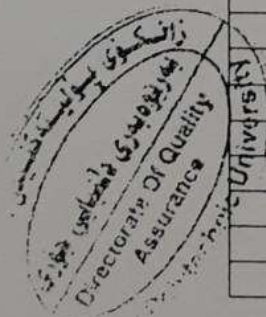 زانکۆی پۆلیتەکنیکی
بەڕێوەبەری دڵنیایی جۆری
Directorate Of Quality
Assurance
Polytechnic University